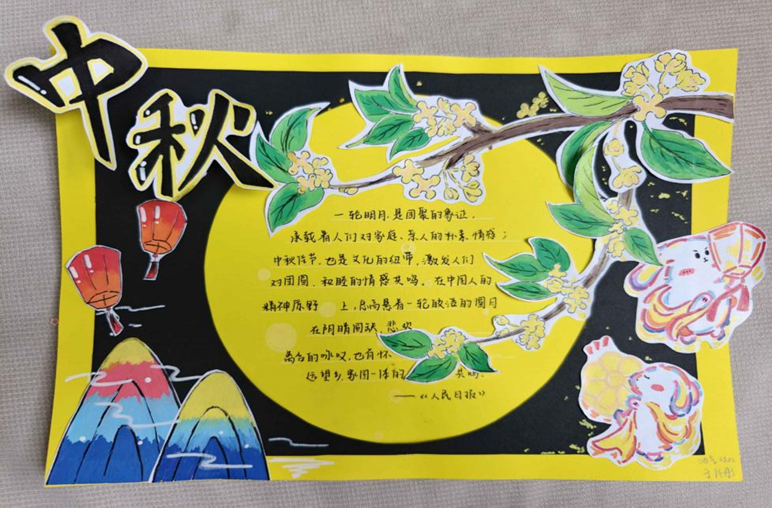 中秋
一轮明月是团聚的象征,
承载着人们对家庭、亲人的朴素情感;
中秋佳节,也是文化的纽带,激发人们
对团圆、和睦的情感共鸣。在中国人的
精神原野上,总高悬着一轮皎洁的圆月
在阴晴圆缺、悲欢
离合的咏叹,也有怀
远望乡、家国一体的共鸣。
——《人民日报》